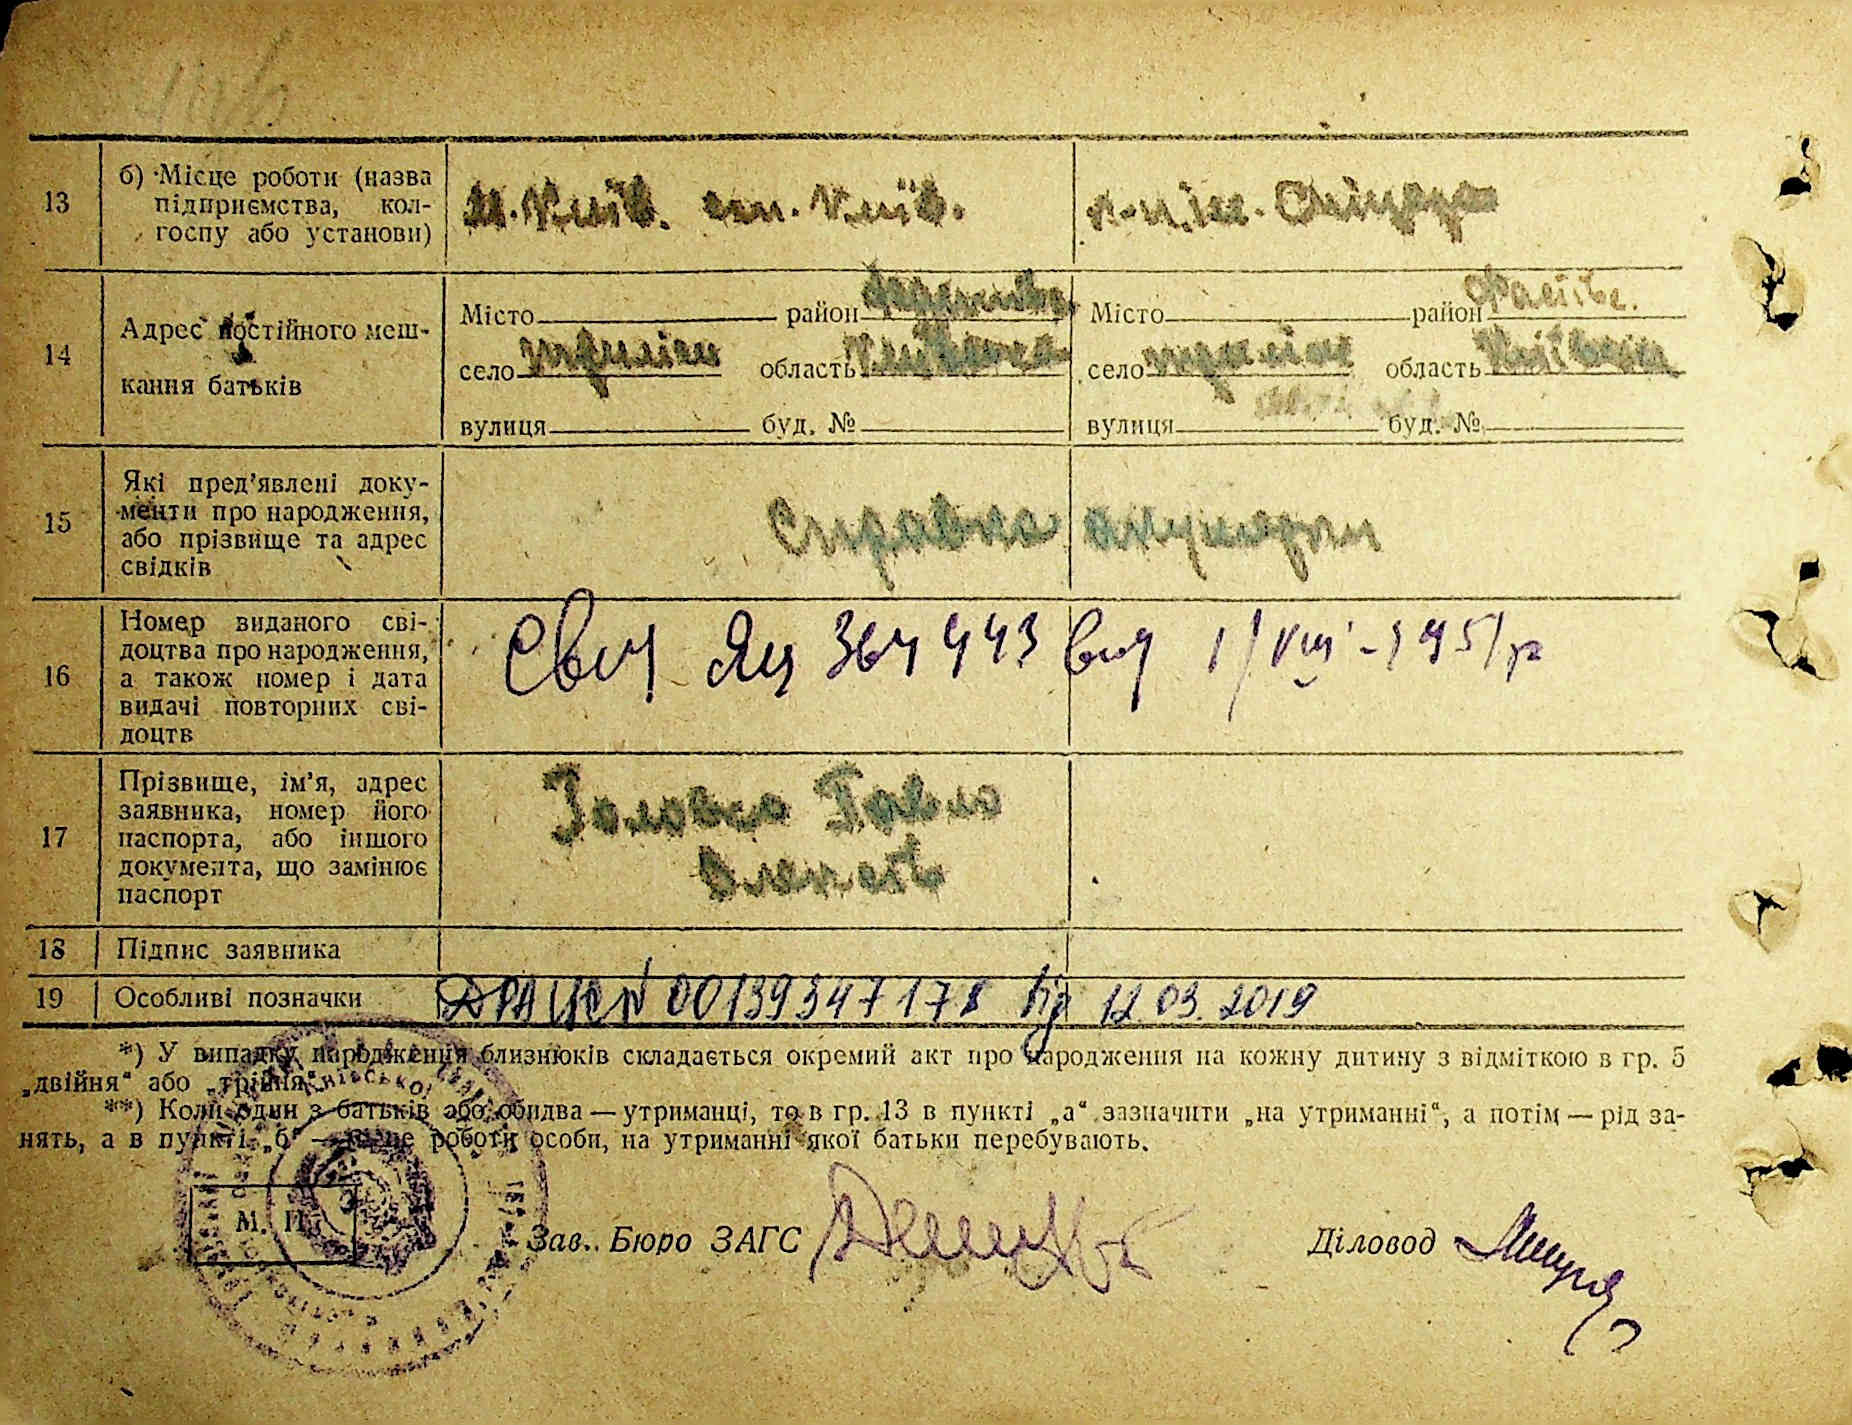 13 б) Місце роботи (назва
підприємства, кол-
госпу або установи)
м. Київ. ст. Київ.
14 Адрес постійного меш-
кання батьків
Місто район
село область Київська
вулиця буд. №
Місто район Фастівс.
село область Київська
вулиця буд. №
15 Які пред'явлені доку-
менти про народження,
або прізвище та адрес
свідків
Справка акушерки
16 Номер виданого сві-
доцтва про народження,
а також номер і дата
видачі повторних сві-
доцтв
364443 1/VIII-1951р
17 Прізвище, ім'я, адрес
заявника, номер його
паспорта, або іншого
документа, що замінює
паспорт
Головко Павло
18 Підпис заявника
19 Особливі позначки
ДРАЦС № 00139347178 від 12.03.2019
*) У випадку народження близнюків складається окремий акт про народження на кожну дитину з відміткою в гр. 5
„двійня“ або „трійня“.
**) Коли один з батьків або обидва — утриманці, то в гр. 13 в пункті „а“ зазначити „на утриманні“, а потім — рід за-
нять, а в пункті „б“ — місце роботи особи, на утриманні якої батьки перебувають.
М. П.
Зав. Бюро ЗАГС
Діловод